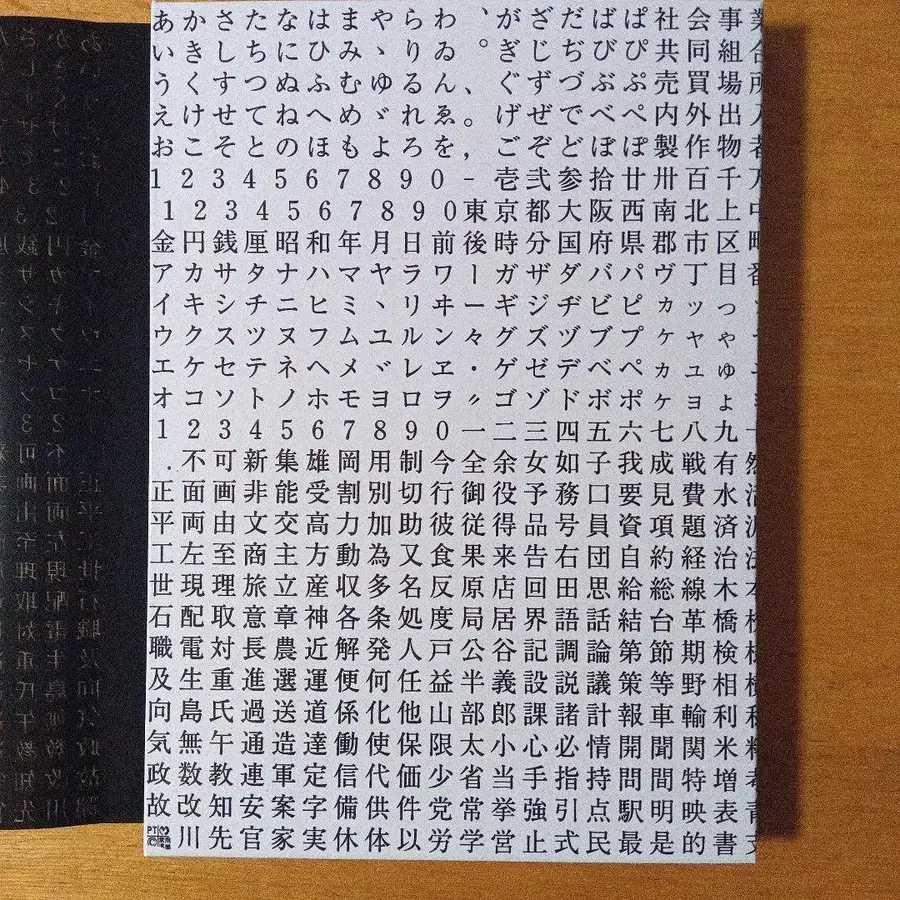 あかさたなはまやらわ、がざだばぱ社会事業
いきしちにひみゝりゐ。ぎじぢびぴ共同組合
うくすつぬふむゆるん、ぐずづぶぷ売買場所
えけせてねへめゞれゑ。げぜでべぺ内外出入
おこそとのほもよろを，ごぞどぼぽ製作物者
1234567890-壱弐参拾廿卅百千万
1234567890東京都大阪西南北上中
金円銭厘昭和年月日前後時分国府県郡市区町
アカサタナハマヤラワーガザダバパヴ丁目番
イキシチニヒミヽリヰ―ギジヂビピヵッっ
ウクスツヌフムユルン々グズヅブプヶャゃ
エケセテネヘメヾレヱ・ゲゼデベペヵュゅ
オコソトノホモヨロヲ〃ゴゾドボポヶョょ
1234567890一二三四五六七八九十
.不可新集雄岡用制今全余女如子我成戦有然
正面画非能受割別切行御役予務口要見費水活
平両由文交高力加助彼従得品号員資項題済派
工左至商主方動為又食果来告右団自約経治法
世現理旅立産収多名反原店回田思給総線木本
石配取意章神各条処度局居界語話結台革橋
職電対長農近解発人戸公谷記調論第節期検
及生重進選運便何任益半義設説議策等野相
向島氏過送道係化他山部郎課諸計報車輸利
気無午通造達働使保限太小心必情開聞関米
政数教連軍定信代価少省当手指持問間特増考
故改知安案字備供件党常挙強引点駅明映表青
川先官家実休体以労学営止式民最是的書文